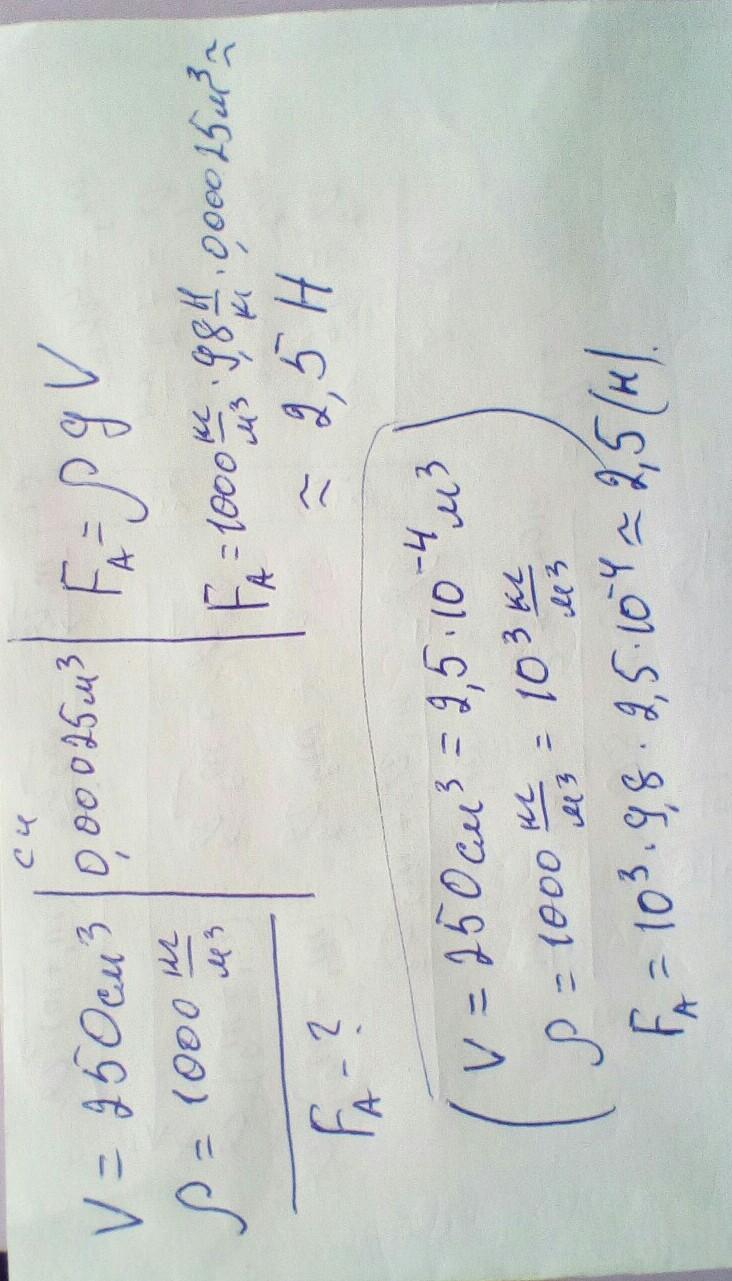 V = 250 см³
ρ = 1000 кг/м³
F_A - ?
СИ
0,00025 м³
F_A = ρ g V
F_A = 1000 кг/м³ · 9,8 Н/кг · 0,00025 м³ ≈
≈ 2,5 Н
(V = 250 см³ = 2,5 · 10⁻⁴ м³
ρ = 1000 кг/м³ = 10³ кг/м³
F_A = 10³ · 9,8 · 2,5 · 10⁻⁴ ≈ 2,5 (Н).